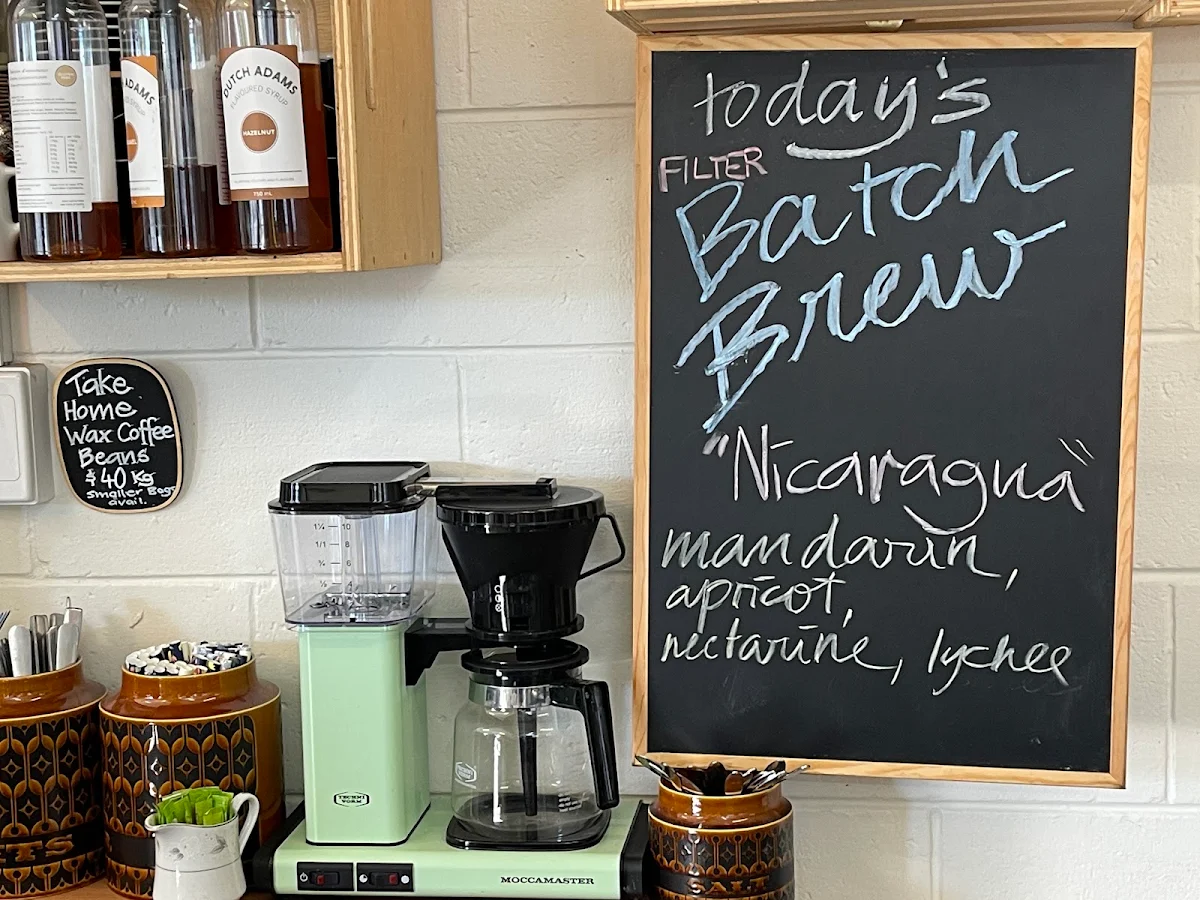 DUTCH ADAMS
FLAVOURED SYRUP
HAZELNUT
750 mL
ADAMS
today's
FILTER
Batch
Brew
"Nicaragua"
mandarin,
apricot,
nectarine, lychee
Take
Home
Wax Coffee
Beans
$40 Kg
smaller Bags
avail.
1¼ 10
1/1 8
¾ 6
½ 4
TECHNI
VORM
MOCCAMASTER
SALT